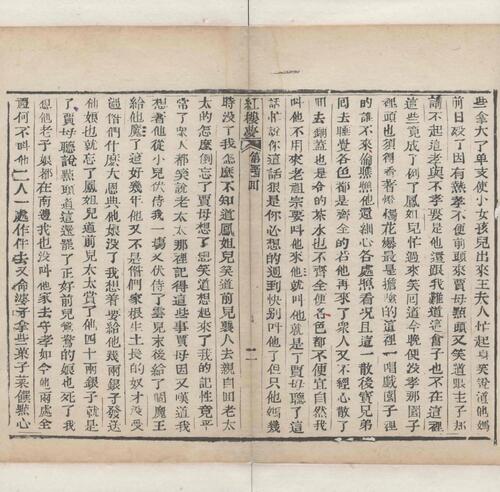 些拿大了單支使小女孩兒出來王夫人忙起身笑說道他媽
前日沒了因有熱孝不便前頭來賈母點頭又笑道跟主子却
講不起這孝與不孝要是他還跟我難道這會子也不在這裡
這些竟成了例了鳳姐兒忙過來笑回道今晚便沒孝那園子
裡頭也須得看着燈燭花爆最是擔險的這裡一唱戲園子裡
的誰不來偷瞧瞧他還細心各處照看况且這一散後寶兄弟
回去睡覺各色都是齊全的若他再來了衆人又不經心散了
回去鋪蓋也是冷的茶水也不齊全便各色都不便宜自然我
叫他不用來老祖宗要叫他來他就是了賈母聽了這
話忙說你這話很是你必想的週到快別叫他了但只他媽幾
紅樓夢 第 囘 二
時沒了我怎麼不知道鳳姐兒笑道前兒襲人去親自回老太
太的怎麼倒忘了賈母想了想笑道想起來了我的記性竟平
常了衆人都笑說老太太那裡記得這些事賈母因又嘆道我
想着他從小兒伏侍我一塲又伏侍了雲兒末後給了個魔王
給他魔了這好幾年他又不是偺們家根生土長的奴才沒受
過偺們什麼大恩典他娘沒了我想着要給他幾兩銀子發送
他娘也就忘了鳳姐兒道前兒太太賞了他四十兩銀子就是
了賈母聽說點頭道這還罷了正好前兒鴛鴦的娘也死了我
想他老子娘都在南邊我也沒叫他家去守孝如今他兩處全
禮何不叫他二人一處作伴去又命婆子拿些菓子菜饌點心